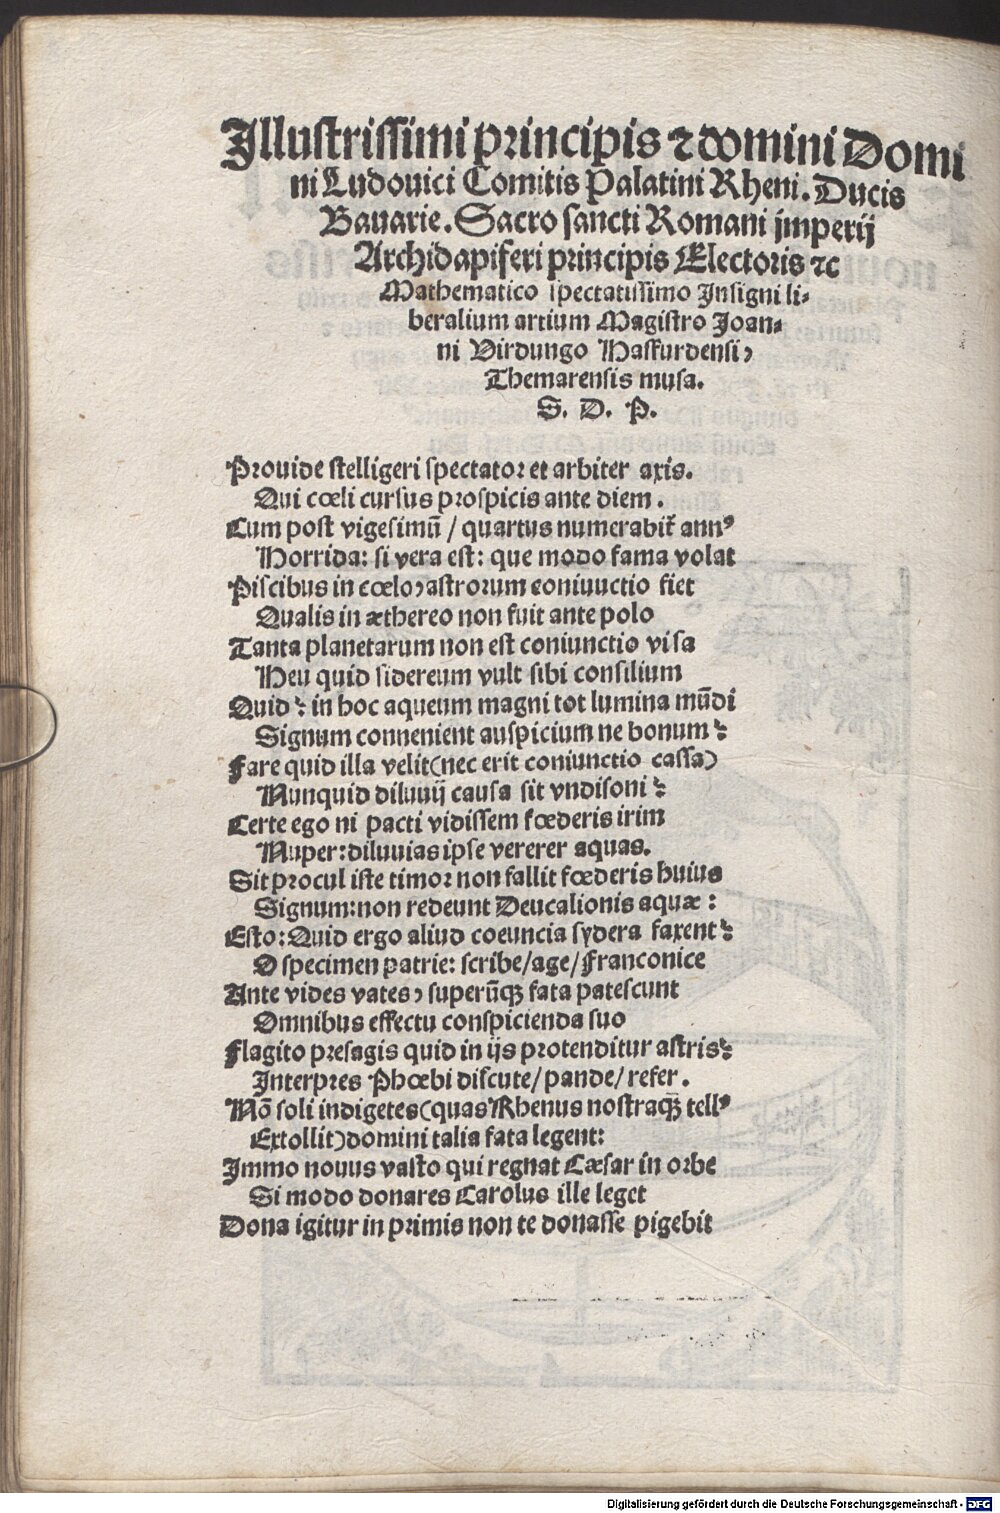 Illustrissimi principis ⁊ domini Domi
ni Ludouici Comitis Palatini Rheni. Ducis
Bauarie. Sacro sancti Romani imperij
Archidapiferi principis Electoris ⁊c
Mathematico spectatissimo Insigni li⸗
beralium artium Magistro Joan⸗
ni Virdungo Hasfurdensi,
Themarensis musa.
S. D. P.
Prouide stelligeri spectator et arbiter axis.
Qui cœli cursus prospicis ante diem.
Cum post vigesimū / quartus numerabit̃ annꝰ
Horrida: si vera est: que modo fama volat
Piscibus in cœlo, astrorum coniuuctio fiet
Qualis in æthereo non fuit ante polo
Tanta planetarum non est coniunctio visa
Heu quid sidereum vult sibi consilium
Quid? in hoc aqueum magni tot lumina mūdi
Signum connenient auspicium ne bonum?
Fare quid illa velit(nec erit coniunctio cassa)
Nunquid diluuij causa sit vndisoni?
Certe ego ni pacti vidissem fœderis irim
Nuper: diluuias ipse vererer aquas.
Sit procul iste timor non fallit fœderis huius
Signum: non redeunt Deucalionis aquæ:
Esto: Quid ergo aliud coeuncia sydera faxent?
O specimen patrie: scribe/age/Franconice
Ante vides vates, superūqꝫ fata patescunt
Omnibus effectu conspicienda suo
Flagito presagis quid in ijs protenditur astris?
Interpres Phœbi discute/pande/refer.
Nō soli indigetes(quas Rhenus nostraqꝫ tellꝰ
Extollit)domini talia fata legent:
Immo nouus vasto qui regnat Cæsar in orbe
Si modo donares Carolus ille leget
Dona igitur in primis non te donasse pigebit
Digitalisierung gefördert durch die Deutsche Forschungsgemeinschaft - DFG